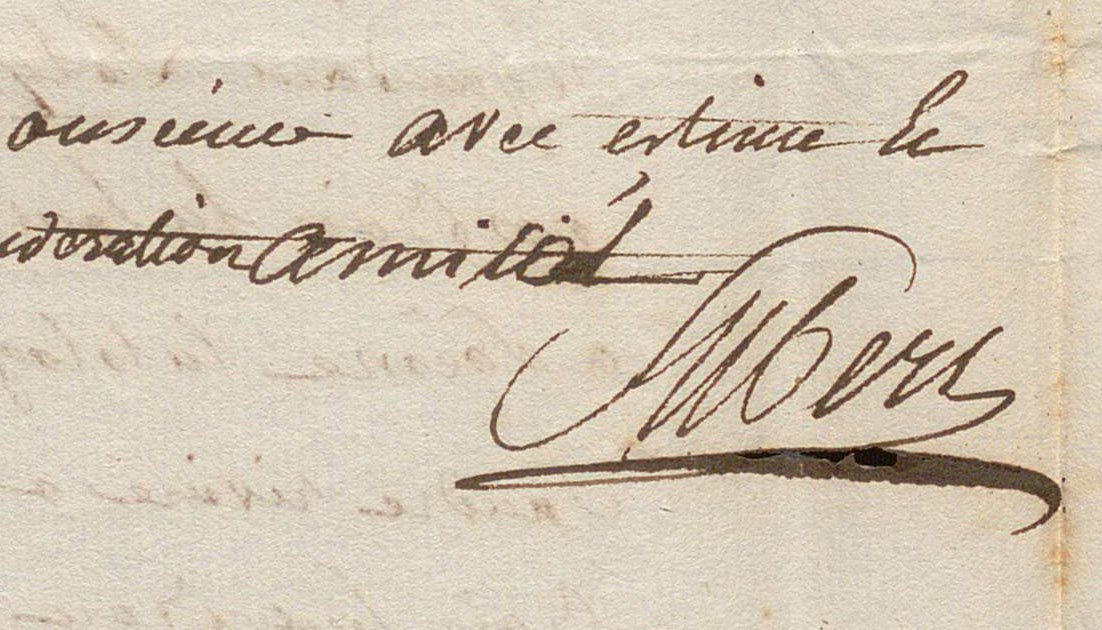 onsieur avec estime Et
ideration amitié